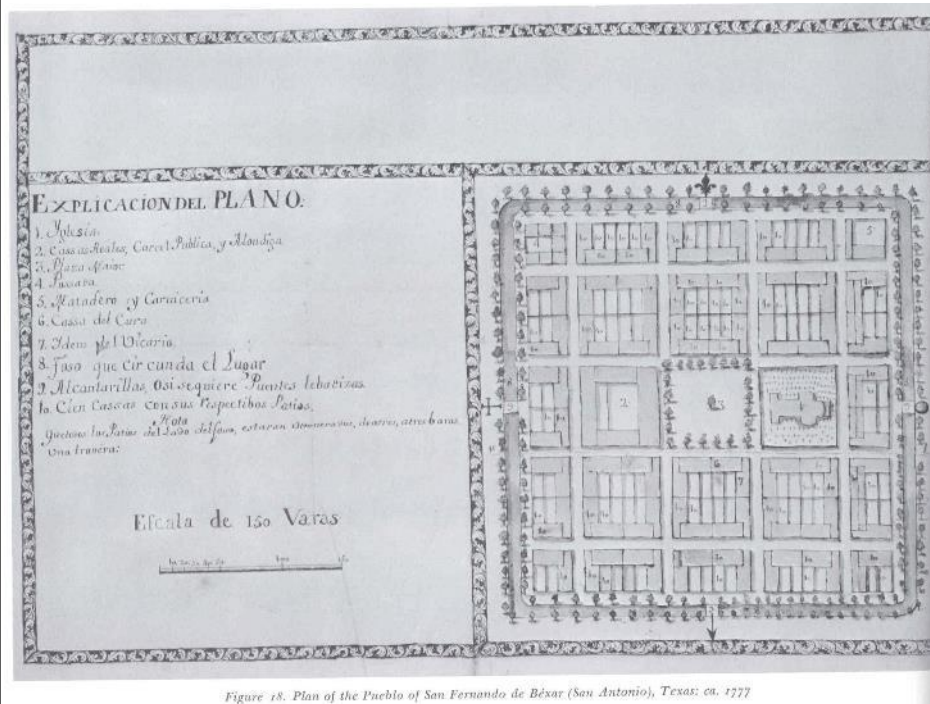 EXPLICACION DEL PLANO.
1. Iglesia.
2. Cassas Reales, Carcel Publica, y Alondiga
3. Plaza Maior
4.
5. Matadero y Carniceria
6. Cassa del Cura
7. Idem del Vicario
8. Foso que circunda el Lugar
9. Alcantarillas, O si se quiere Puentes lebadizas
10. Cien Cassas con sus respectibos Patios.
Nota
Que todos los Patios del Lado del foso, estaran
una tronera:
Escala de 150 Varas
Figure 18. Plan of the Pueblo of San Fernando de Béxar (San Antonio), Texas: ca. 1777